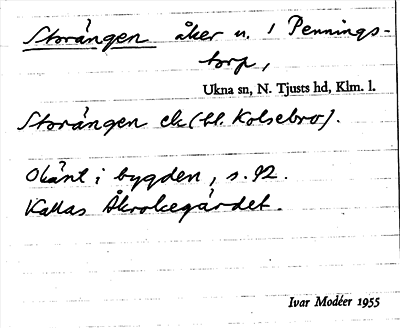 Storängen åker n. 1 Pennings-
torp,
Ukna sn, N. Tjusts hd, Klm. l.
Storängen ek (bl. Kolsebro).
Okänt i bygden, s. 92.
Kallas Åkrokegärdet.
Ivar Modéer 1955